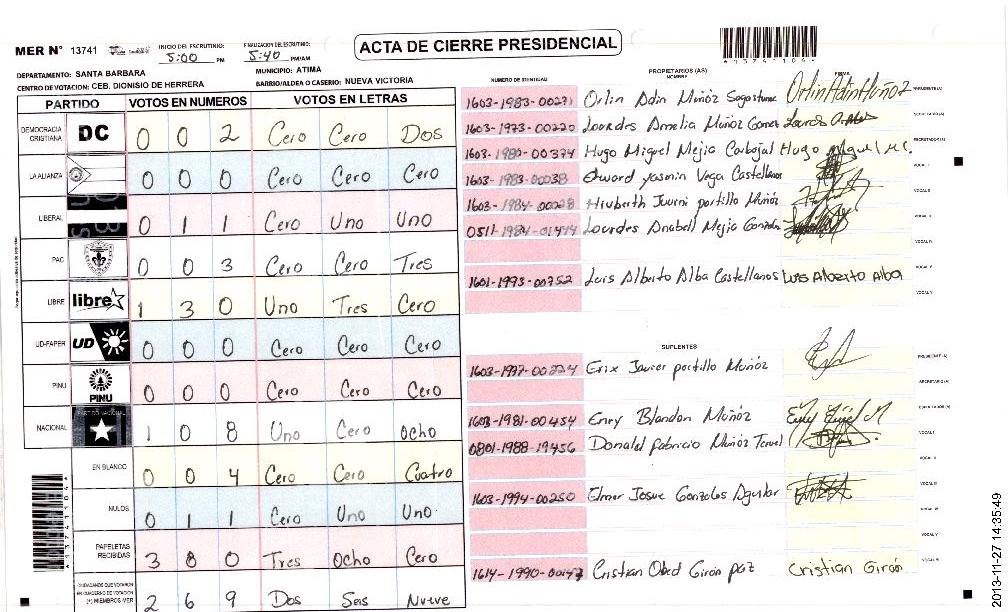 MER N° 13741
INICIO DEL ESCRUTINIO: 5:00 PM
FINALIZACION DEL ESCRUTINIO: 5:40 PM/AM
ACTA DE CIERRE PRESIDENCIAL
A137411104
DEPARTAMENTO: SANTA BARBARA
MUNICIPIO: ATIMA
CENTRO DE VOTACION: CEB. DIONISIO DE HERRERA
BARRIO/ALDEA O CASERIO: NUEVA VICTORIA
PARTIDO VOTOS EN NUMEROS VOTOS EN LETRAS
DEMOCRACIA CRISTIANA DC 0 0 2 Cero Cero Dos
LA ALIANZA 0 0 0 Cero Cero Cero
LIBERAL 0 1 1 Cero Uno Uno
PAC 0 0 3 Cero Cero Tres
LIBRE libre 1 3 0 Uno Tres Cero
UD-FAPER UD 0 0 0 Cero Cero Cero
PINU PINU 0 0 0 Cero Cero Cero
NACIONAL 1 0 8 Uno Cero Ocho
EN BLANCO 0 0 4 Cero Cero Cuatro
NULOS 0 1 1 Cero Uno Uno
PAPELETAS RECIBIDAS 3 8 0 Tres Ocho Cero
CIUDADANOS QUE VOTARON EN CUADERNO DE VOTACION (+) MIEMBROS MER 2 6 9 Dos Seis Nueve
PROPIETARIOS (AS)
NUMERO DE IDENTIDAD NOMBRE FIRMA
1603-1983-00271 Orlin Adin Muñoz Sagastume Orlin Adin Muñoz PRESIDENTE (A)
1603-1973-00220 Lourdes Amelia Muñoz Gomez SECRETARIO (A)
1603-1980-00374 Hugo Miguel Mejia Carbajal Hugo Miguel M.C. ESCRUTADOR (A)
1603-1983-00038 Edward Yasmin Vega Castellanos VOCAL I
1603-1984-00028 Hiuberth Juvini portillo Muñóz VOCAL II
0511-1984-01444 Lourdes Anabell Mejia Gonzalez
VOCAL IV
1601-1993-00752 Luis Alberto Alba Castellanos Luis Alberto Alba VOCAL V
SUPLENTES
1603-1997-00224 Erix Javier portillo Muñóz PRESIDENTE (A)
SECRETARIO (A)
1603-1981-00454 Enry Blandon Muñóz ESCRUTADOR (A)
0801-1988-19456 Donald fabricio Muñóz Teruel VOCAL I
VOCAL II
1603-1994-00250 Elmer Josue Gonzales Aguilar VOCAL III
1614-1990-00147 Cristian Obed Girón paz Cristian Girón
2013-11-27 14:35:49